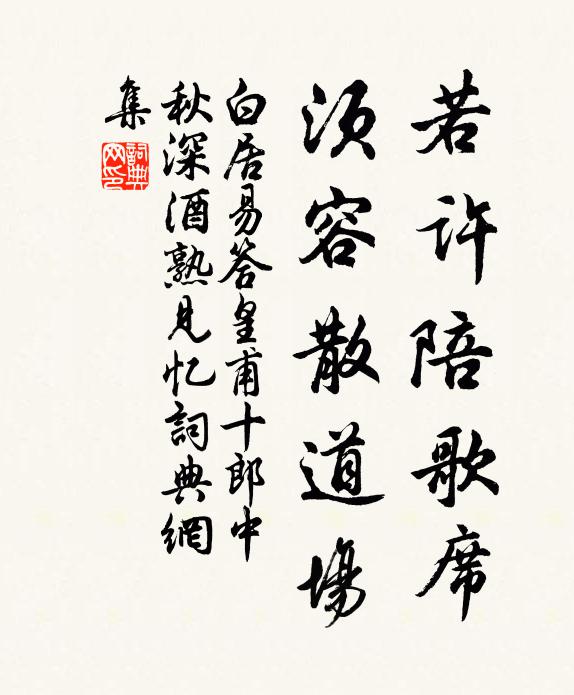 若许陪歌席
须容散道場
白居易答皇甫十郎中
秋深酒熟見忆詞典網
集
詞典
网印